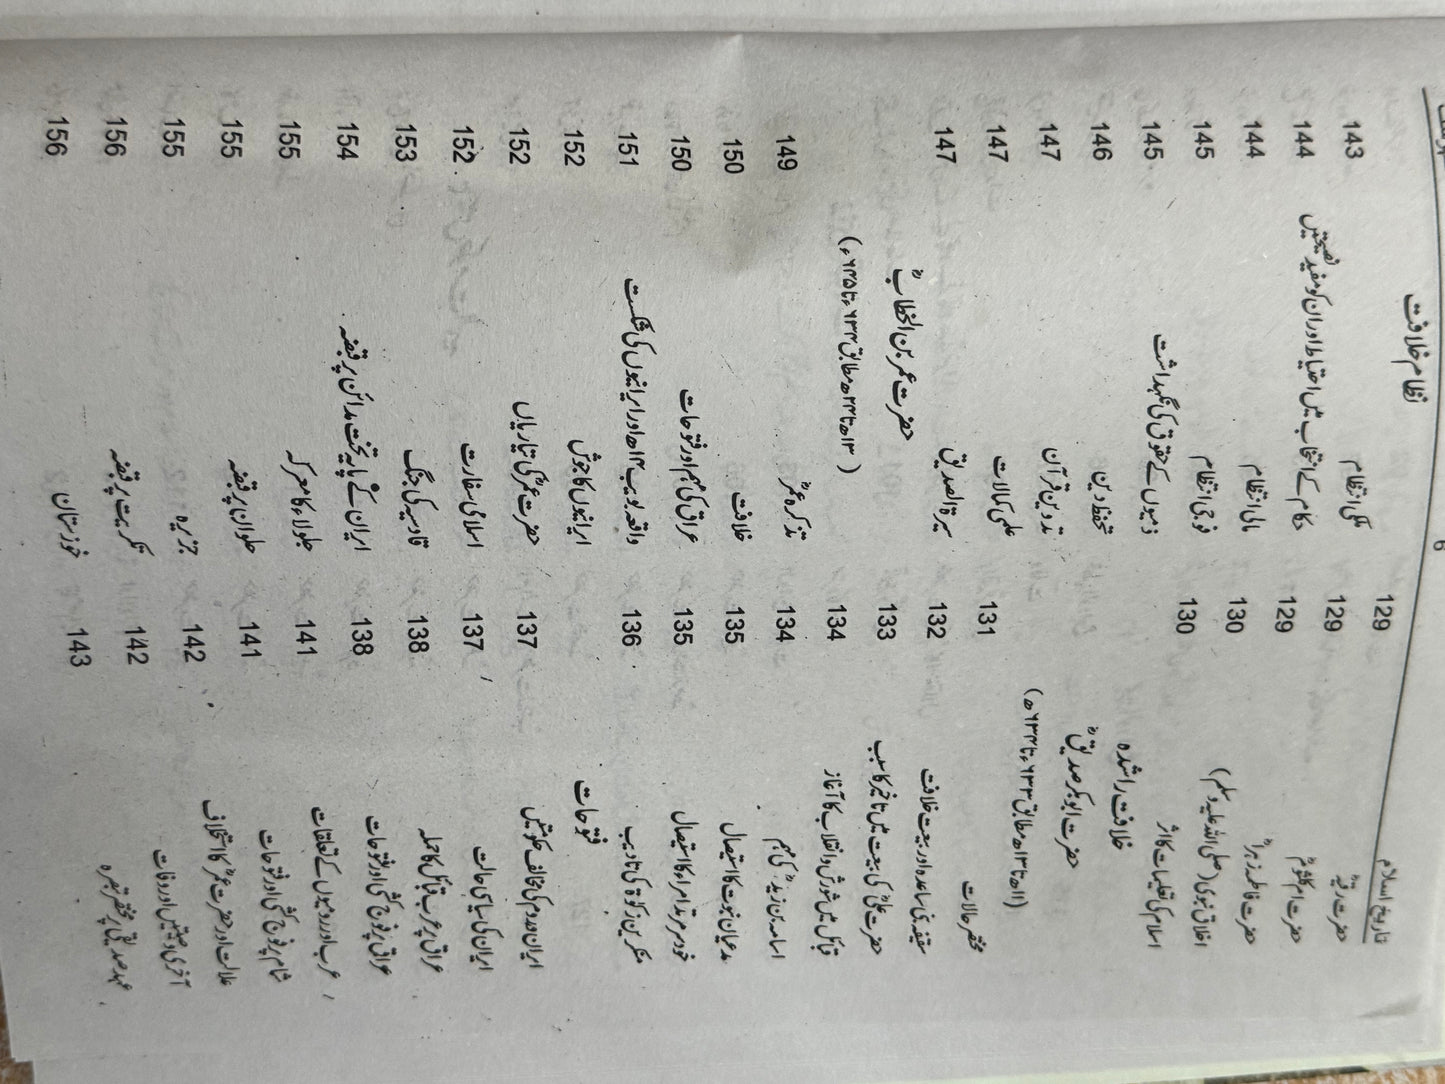 تاریخ اسلام
6
حضرت رقیہؓ 129
حضرت ام کلثومؓ 129
حضرت فاطمہ زہراؓ 129
اخلاق نبوی (صلی اللہ علیہ وسلم) 130
اسلام کی تعلیمات کا اثر 130
خلافت راشدہ
حضرت ابوبکر صدیقؓ
(۱۱ھ تا ۱۳ھ مطابق ۶۳۳ء تا ۶۳۴ء)
مختصر حالات 131
سقیفہ بنی ساعدہ اور بیعت خلافت 132
حضرت علیؓ کی بیعت میں تاخیر کا سبب 133
قبائل میں شورش و انقلاب کا آغاز 134
اسامہ بن زیدؓ کی مہم 134
مدعیان نبوت کا استیصال 135
خودسر مرتد امراء کا استیصال 135
منکرین زکوٰۃ کی تادیب 136
فتوحات
ایران و روم کی مخالف حکومتیں 137
ایران کی سیاسی حالت 137
عراق پر عرب قبائل کا حملہ 138
عراق پر فوج کشی اور فتوحات 138
عرب اور رومیوں کے تعلقات 141
شام پر فوج کشی اور فتوحات 141
علالت اور حضرت عمرؓ کا استخلاف 142
آخری وصیتیں اور وفات 142
عہد صدیقی پر مختصر تبصرہ 143
نظام خلافت
ملکی انتظام 143
حکام کے انتخاب میں احتیاط اور ان کو مفید نصیحتیں 144
مالی انتظام 144
فوجی انتظام 145
ذمیوں کے حقوق کی نگہداشت 145
تحفظ دین 146
تدوین قرآن 147
علمی کمالات 147
سیرۃ الصدیقؓ 147
حضرت عمر بن الخطابؓ
(۱۳ھ تا ۲۳ھ مطابق ۶۳۴ء تا ۶۴۵ء)
تذکرہ عمرؓ 149
خلافت 150
عراق کی مہم اور فتوحات 150
واقعہ بویب ۱۳ھ اور ایرانیوں کی شکست 151
ایرانیوں کا جوش 152
حضرت عمرؓ کی تیاریاں 152
اسلامی سفارت 152
قادسیہ کی جنگ 153
ایران کے پایہ تخت مدائن پر قبضہ 154
جلولاء کا معرکہ 155
حلوان پر قبضہ 155
جزیرہ 155
تکریت پر قبضہ 156
خوزستان 156